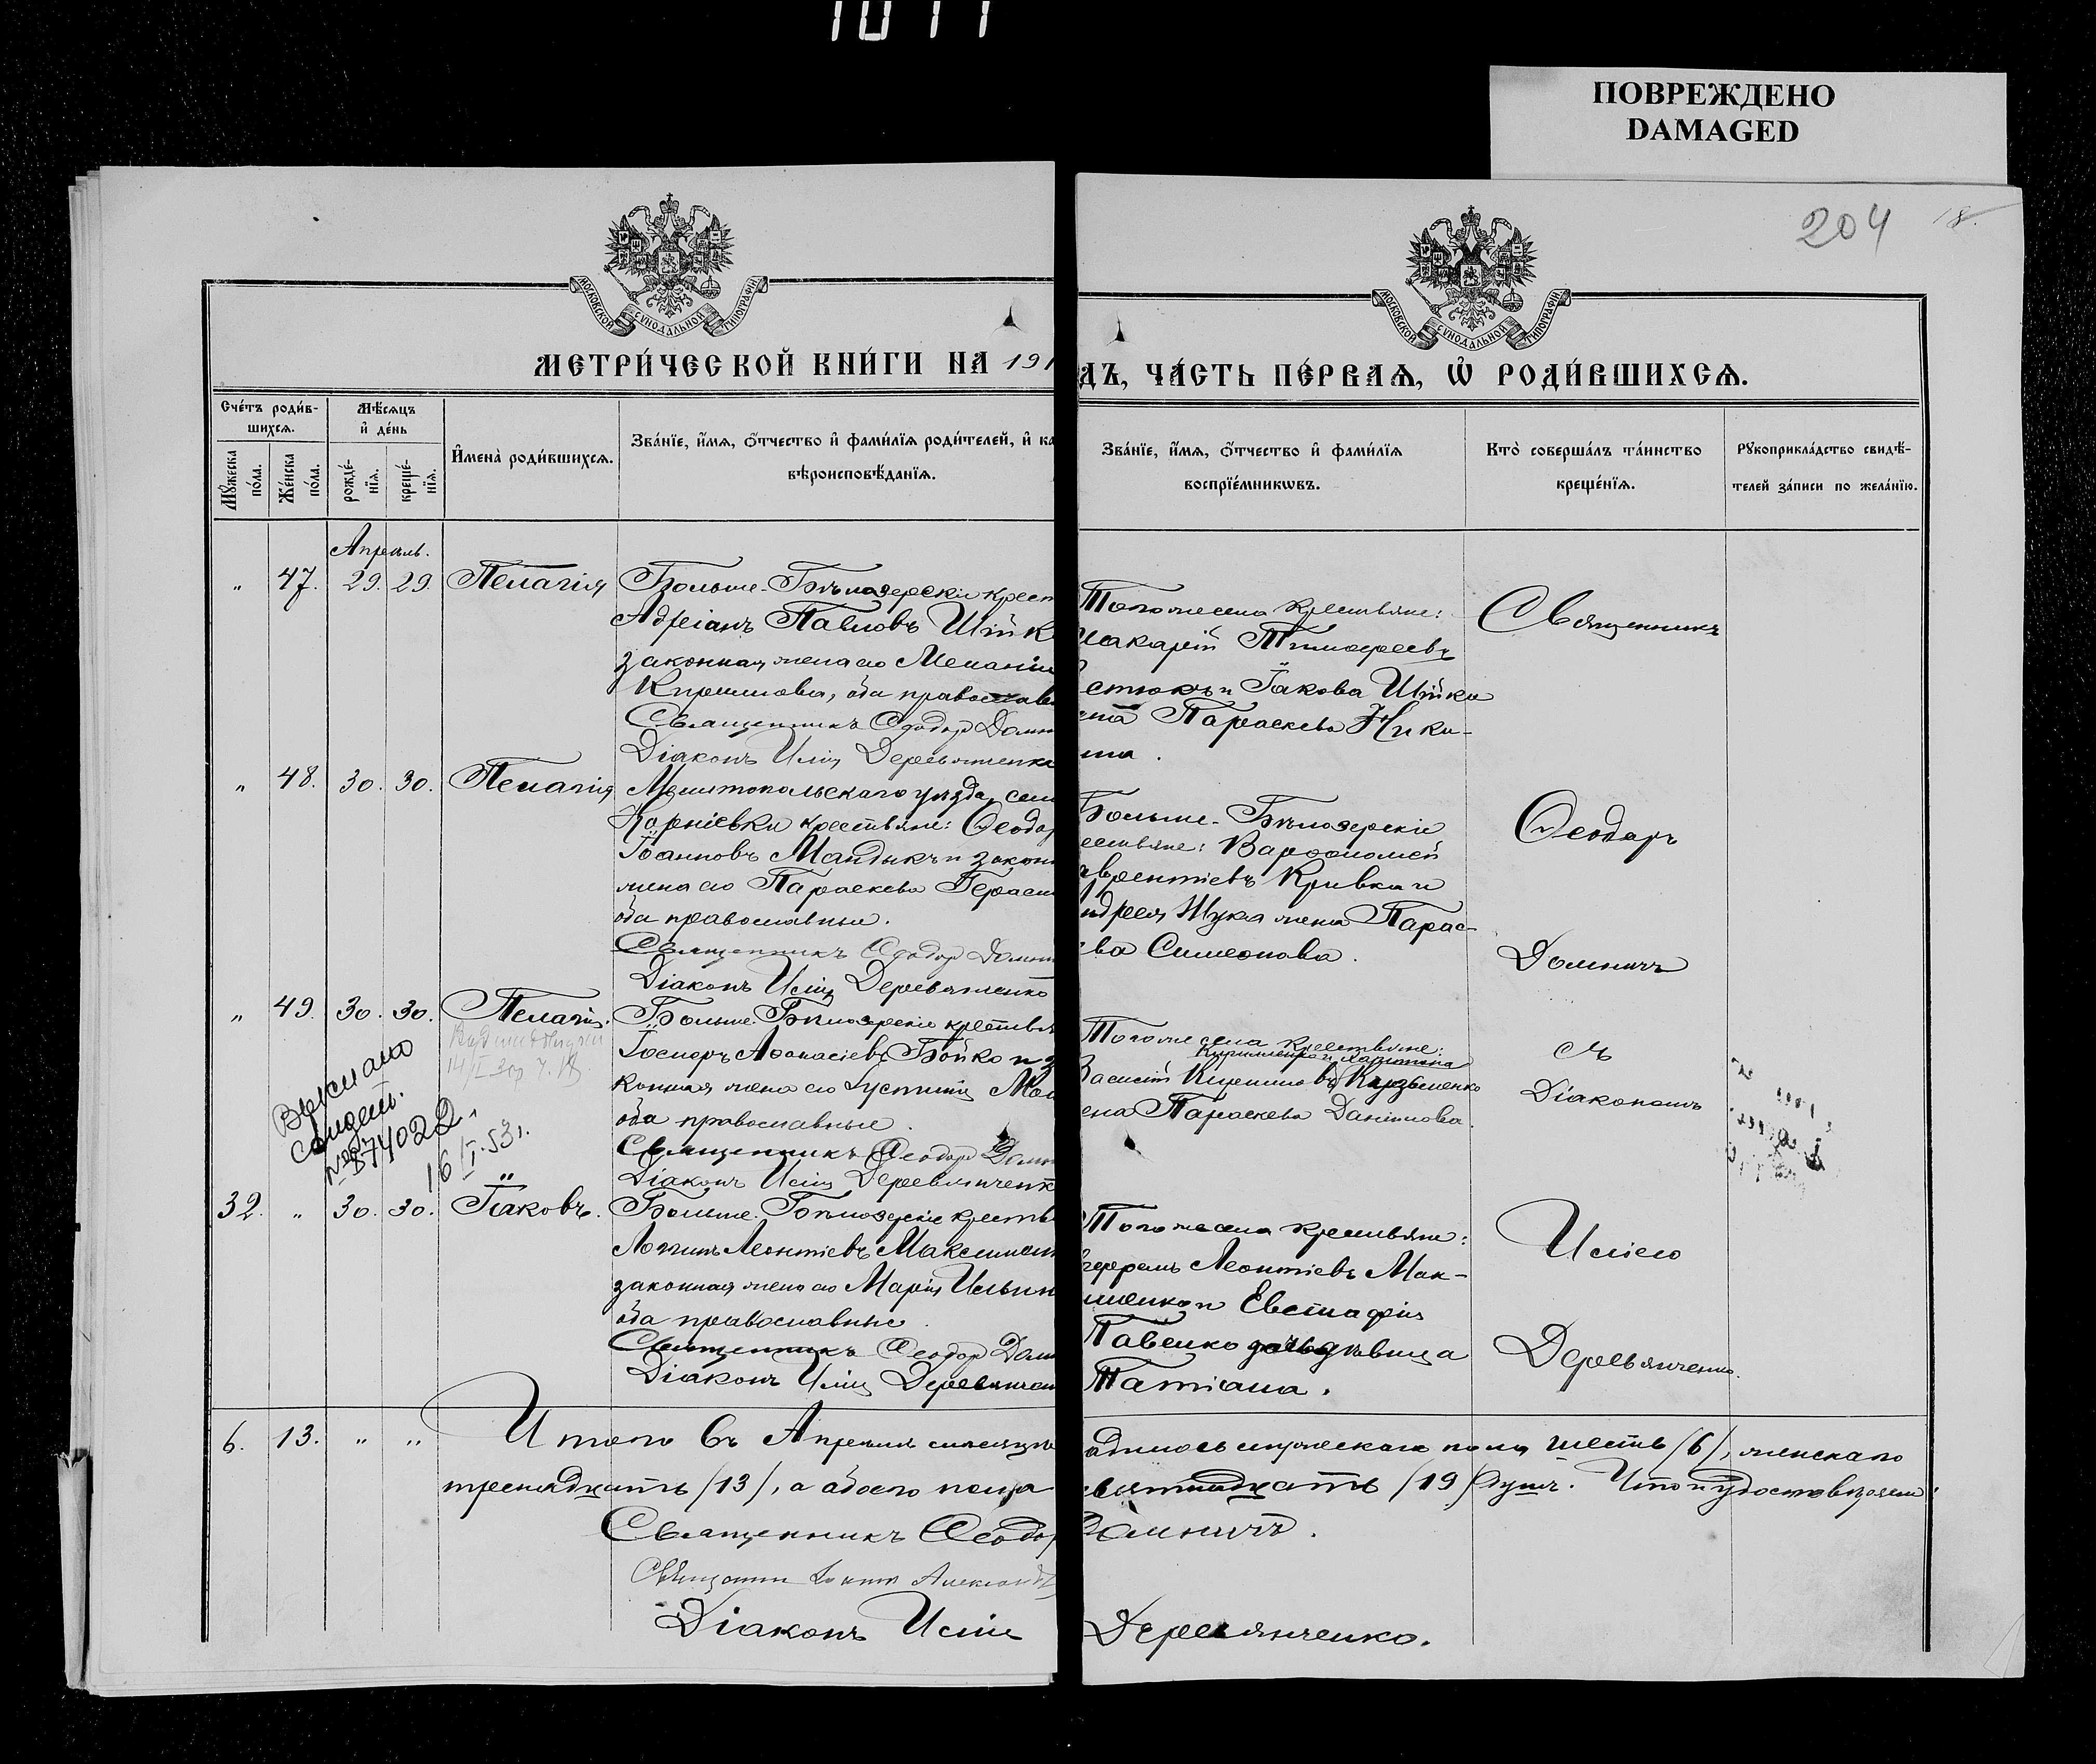 1011
ПОВРЕЖДЕНО
DAMAGED
204
18.
МОСКОВСКОЙ СѴНОДАЛЬНОЙ ТИПОГРАФІИ
МОСКОВСКОЙ СѴНОДАЛЬНОЙ ТИПОГРАФІИ
МЕТРИ́ЧЕСКОЙ КНИ́ГИ НА 191
ДЪ, ЧА́СТЬ ПЕ́РВАѦ, Ѡ҆ РОДИ́ВШИХСѦ.
Сче́тъ роди́в-
шихсѧ.
Мѣ́сѧцъ
и҆ де́нь
Мꙋ́жеска по́ла.
Же́нска по́ла.
рожде́-
нїѧ.
креще́-
нїѧ.
И҆мена̀ роди́вшихсѧ.
Зва́нїе, и҆́мѧ, ѻ҆́тчество и҆ фами́лїѧ роди́телей, и҆ ка
вѣроисповѣ́данїѧ.
Зва́нїе, и҆́мѧ, ѻ҆́тчество и҆ фами́лїѧ
воспрїе́мникѡвъ.
Кто̀ соверша́лъ та́инство
креще́нїѧ.
Рꙋкоприкла́дство свидѣ́-
телей за́писи по жела́нїю.
Апрель.
" 47. 29. 29. Пелагія
Больше-Бѣлозерскіе крест
Адріанъ Павловъ Шійк
законная жена его Меланія
Кириллова, оба правослов
Священникъ Ѳеодор Домн
Діаконъ Илія Деревянченко
Того же села крестьяне:
Макарій Тимофеевъ
стюкъ и Іакова Шійки
ена Параскева Ники-
та.
Священникъ
" 48. 30. 30. Пелагія
Мелитопольскаго уѣзда, сел
Корніевки крестьяне: Ѳеодор
Іоанновъ Мандыкъ и закон
жена его Параскева Герасим
оба православные.
Священникъ Ѳеодор Домн
Діаконъ Илія Деревянченко
Больше-Бѣлозерскіе
естьяне: Варѳоломей
аврентіевъ Кривка и
ндрея Жука жена Парас-
ева Симеонова.
Ѳеодоръ
Домничъ
" 49. 30. 30. Пелагія.
14/I
Выслано
свидет.
№ 374022
16/I.53г.
Больше-Бѣлозерскіе крестья
Іосифъ Аѳанасіевъ Бойко и з
конная жена его Іустина
оба православные.
Священникъ Ѳеодор Домн
Діаконъ Илія Деревянченк
Того же села крестьяне:
Кириленко и Харитона
Василій Кирилловъ Кузьменко
ена Параскева Даніилова.
съ
Діакономъ
32. " 30. 30. Іаковъ.
Больше-Бѣлозерскіе крестья
Логинъ Леонтіевъ Максимен
законная жена его Марія Ильин
оба православные.
Священникъ Ѳеодор Домн
Діаконъ Илія Деревянчен
Того же села крестьяне:
Леонтіевъ Мак-
именко и Евстафія
Павенко дочь дѣвица
Татіана.
Иліею
Деревянченко.
6. 13. " " Итого въ Апрелѣ мѣсяцѣ
одилось мужеского пола шесть /6/, женскаго
тренадцать /13/, а обоего пола
евятнадцать /19/ душъ. Что и удостовѣряемъ:
Священникъ Ѳеодор
Домничъ.
Священникъ Александ
Діаконъ Илія
Деревянченко.